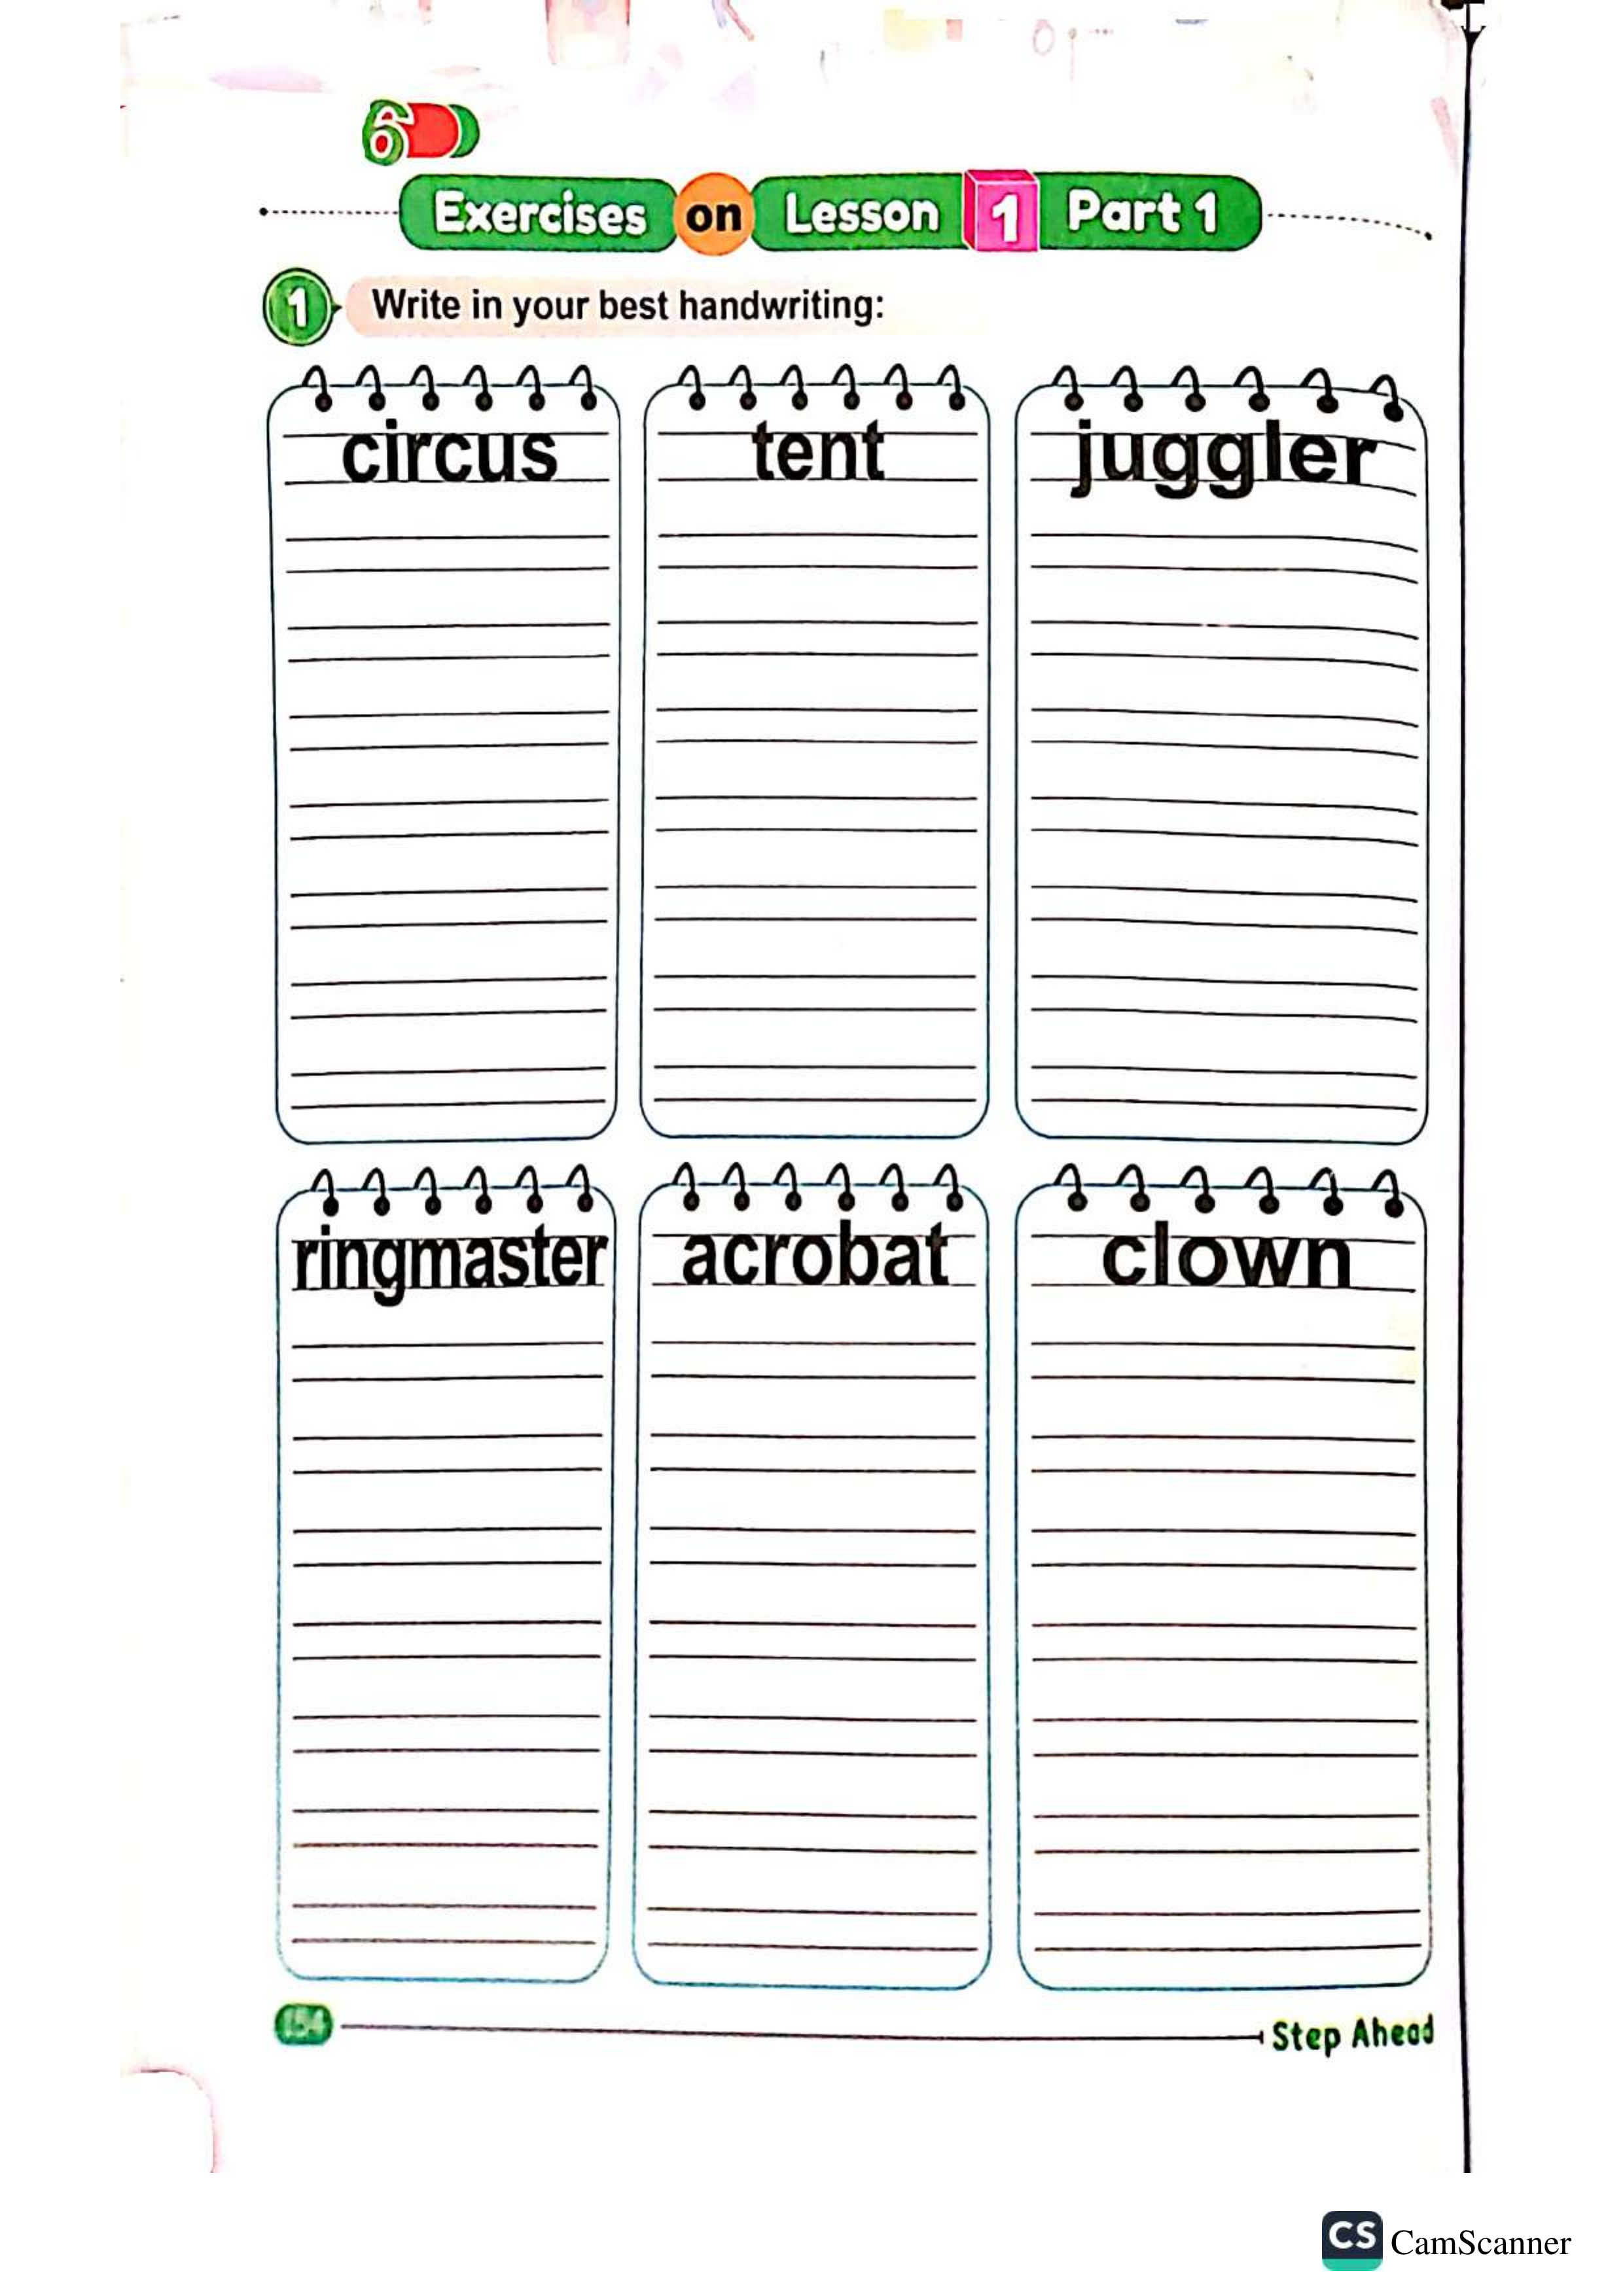 6
Exercises on Lesson 1 Part 1
1 Write in your best handwriting:
circus tent juggler
ringmaster acrobat clown
154 Step Ahead
CS CamScanner